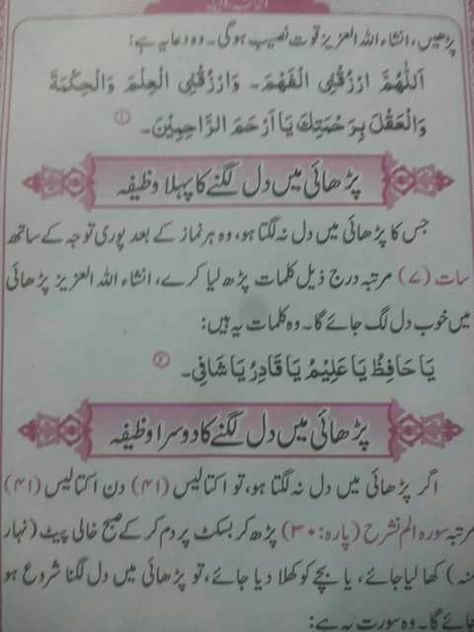 پڑھیں، انشاء اللہ العزیز قوت نصیب ہوگی۔ وہ دعا یہ ہے:
اَللّٰهُمَّ ارْزُقْنِی الْفَهْمَ۔ وَارْزُقْنِی الْعِلْمَ وَالْحِكْمَةَ
وَالْعَقْلَ بِرَحْمَتِكَ يَا اَرْحَمَ الرَّاحِمِيْنَ۔ ①
پڑھائی میں دل لگنے کا پہلا وظیفہ
جس کا پڑھائی میں دل نہ لگتا ہو، وہ ہر نماز کے بعد پوری توجہ کے ساتھ
سات (۷) مرتبہ درج ذیل کلمات پڑھ لیا کرے، انشاء اللہ العزیز پڑھائی
میں خوب دل لگ جائے گا۔ وہ کلمات یہ ہیں:
يَا حَافِظُ يَا عَلِيْمُ يَا قَادِرُ يَا شَافِی۔ ②
پڑھائی میں دل لگنے کا دوسرا وظیفہ
اگر پڑھائی میں دل نہ لگتا ہو، تو اکتالیس (۴۱) دن اکتالیس (۴۱)
مرتبہ سورہ الم نشرح (پارہ: ۳۰) پڑھ کر بسکٹ پر دم کر کے صبح خالی پیٹ (نہار
منہ) کھا لیا جائے، یا بچے کو کھلا دیا جائے، تو پڑھائی میں دل لگنا شروع ہو
جائے گا۔ وہ سورت یہ ہے: